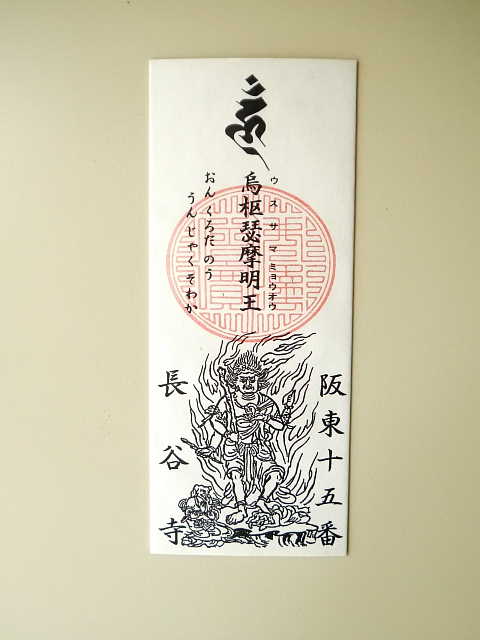 烏枢瑟摩明王
ウスサマミョウオウ
おんくろだのう
うんじゃくそわか
阪東十五番
長谷寺